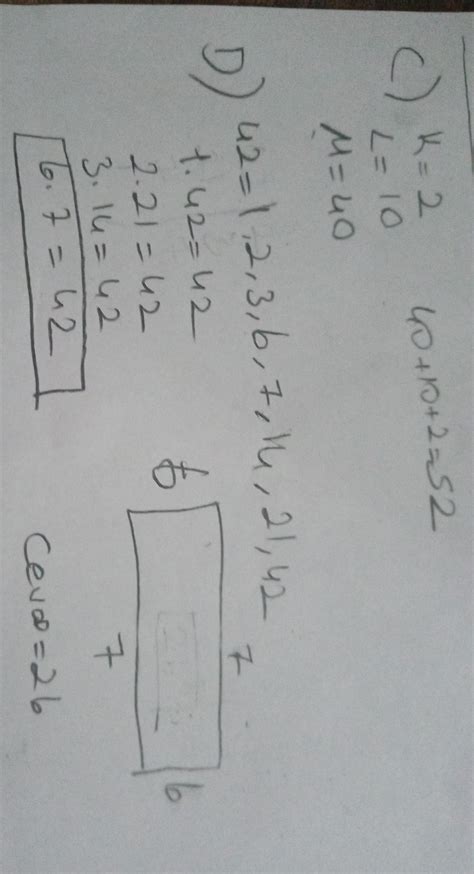 C) K=2
L=10
M=40
40+10+2=52
D) 42=1,2,3,6,7,14,21,42
1.42=42
2.21=42
3.14=42
6.7=42
7
6
6
7
Cevap=26